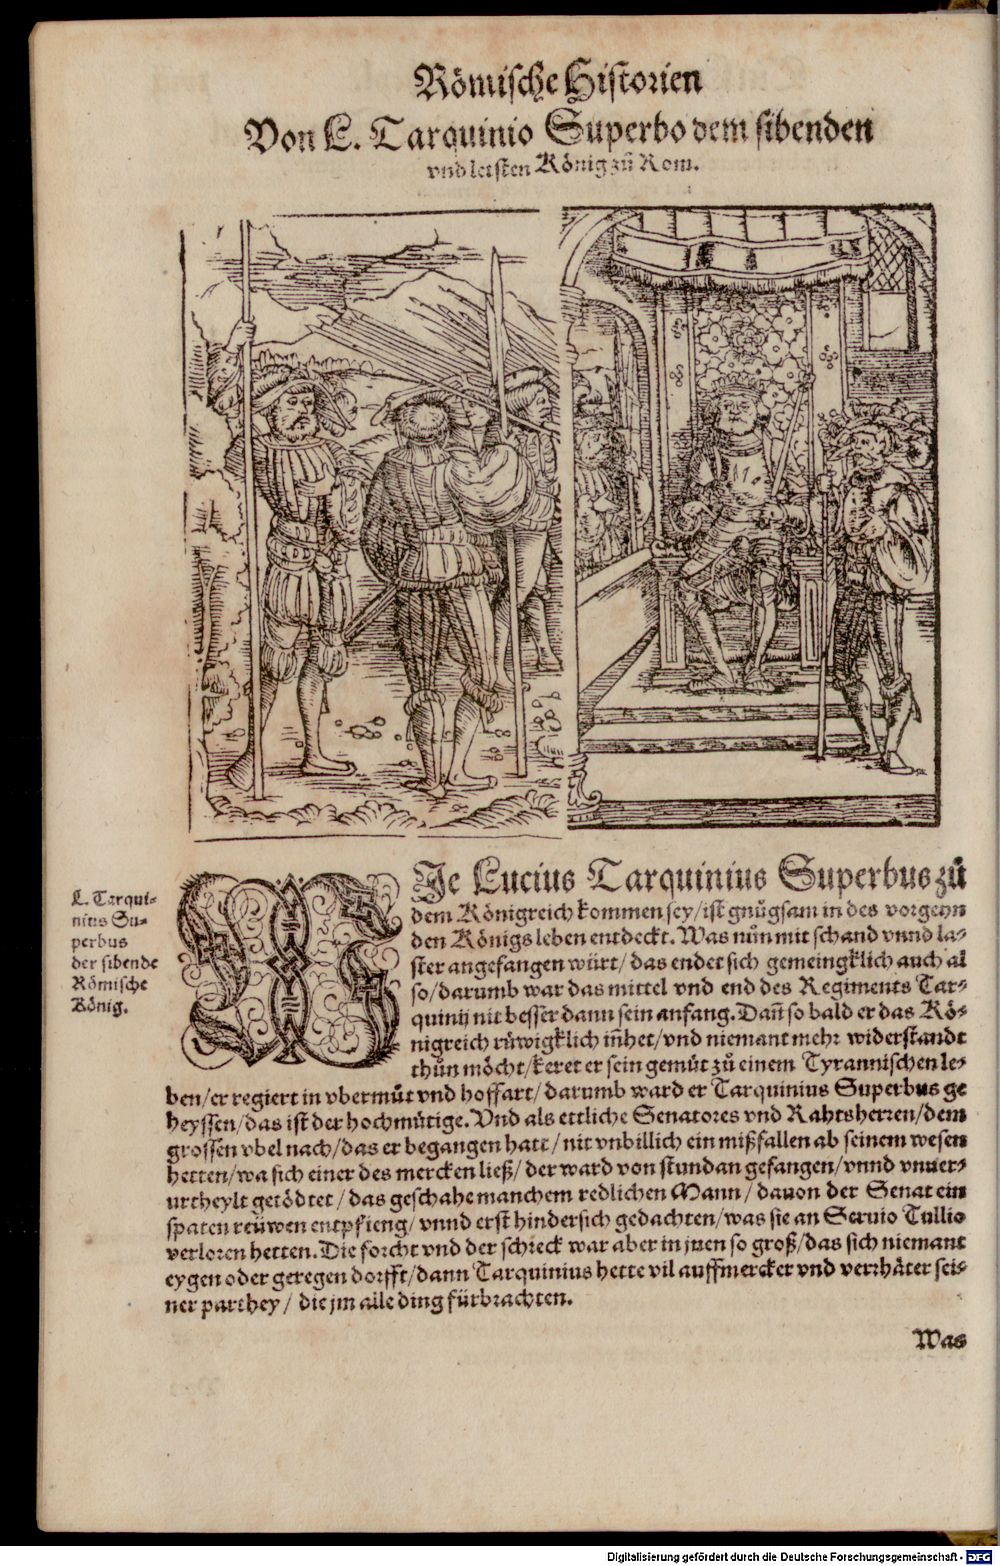 Römische Historien
Von L. Tarquinio Superbo dem sibenden
vnd letsten König zů Rom.
L. Tarqui-
nius Su-
perbus
der sibende
Römische
König.
WJe Lucius Tarquinius Superbus zů
dem Königreich kommen sey/ist gnůgsam in des vorgehn
den Königs leben entdeckt. Was nůn mit schand vnnd la-
ster angefangen würt/das endet sich gemeingklich auch al
so/darumb war das mittel vnd end des Regiments Tar-
quinij nit besser dann sein anfang. Dañ so bald er das Kö-
nigreich růwigklich iñhet/vnd niemant mehr widerstandt
thůn möcht/keret er sein gemüt zů einem Tyrannischen le-
ben/er regiert in vbermůt vnd hoffart/darumb ward er Tarquinius Superbus ge
heyssen/das ist der hochmütige. Vnd als ettliche Senatores vnd Rahtsherren/dem
grossen vbel nach/das er begangen hatt/nit vnbillich ein mißfallen ab seinem wesen
hetten/wa sich einer des mercken ließ/der ward von stundan gefangen/vnnd vnuer-
urtheylt getödtet/das geschahe manchem redlichen Mann/dauon der Senat ein
spaten reüwen entpfieng/vnnd erst hindersich gedachten/was sie an Seruio Tullio
verloren hetten. Die forcht vnd der schreck war aber in jnen so groß/das sich niemant
eygen oder geregen dorfft/dann Tarquinius hette vil auffmercker vnd verrhäter sei-
ner parthey/die jm alle ding fürbrachten.
Was
Digitalisierung gefördert durch die Deutsche Forschungsgemeinschaft - DFG